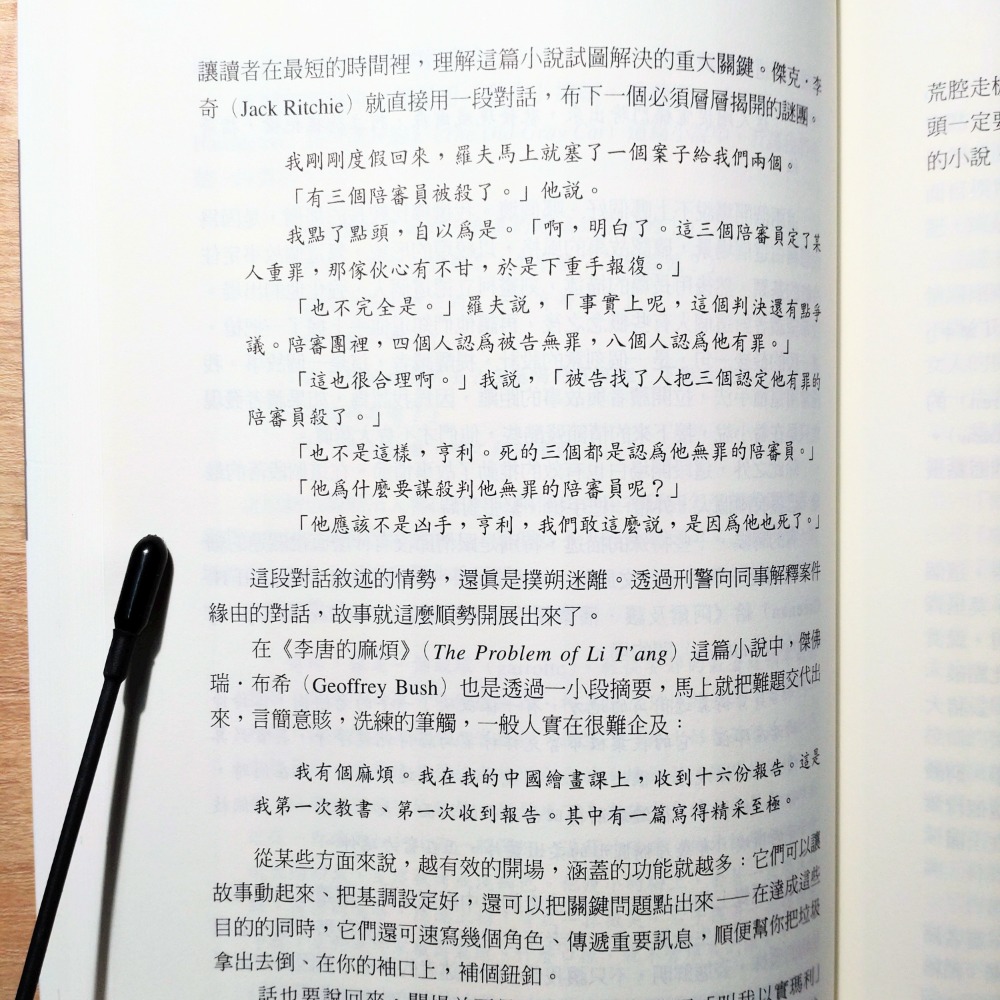 讓讀者在最短的時間裡，理解這篇小說試圖解決的重大關鍵。傑克．李
奇（Jack Ritchie）就直接用一段對話，布下一個必須層層揭開的謎團。
我剛剛度假回來，羅夫馬上就塞了一個案子給我們兩個。
「有三個陪審員被殺了。」他說。
我點了點頭，自以爲是。「啊，明白了。這三個陪審員定了某
人重罪，那傢伙心有不甘，於是下重手報復。」
「也不完全是。」羅夫說，「事實上呢，這個判決還有點爭
議。陪審團裡，四個人認爲被告無罪，八個人認爲他有罪。」
「這也很合理啊。」我說，「被告找了人把三個認定他有罪的
陪審員殺了。」
「也不是這樣，亨利。死的三個都是認爲他無罪的陪審員。」
「他爲什麼要謀殺判他無罪的陪審員呢？」
「他應該不是凶手，亨利，我們敢這麼說，是因爲他也死了。」
這段對話敘述的情勢，還眞是撲朔迷離。透過刑警向同事解釋案件
緣由的對話，故事就這麼順勢開展出來了。
在《李唐的麻煩》（The Problem of Li T'ang）這篇小說中，傑佛
瑞．布希（Geoffrey Bush）也是透過一小段摘要，馬上就把難題交代出
來，言簡意賅，洗練的筆觸，一般人實在很難企及：
我有個麻煩。我在我的中國繪畫課上，收到十六份報告。這是
我第一次教書、第一次收到報告。其中有一篇寫得精采至極。
從某些方面來說，越有效的開場，涵蓋的功能就越多：它們可以讓
故事動起來、把基調設定好，還可以把關鍵問題點出來——在達成這些
目的的同時，它們還可速寫幾個角色、傳遞重要訊息，順便幫你把垃圾
拿出去倒、在你的袖口上，補個鈕釦。
話也要說回來，開場
「叫我以實瑪利」
荒腔走板
頭一定要
的小說，